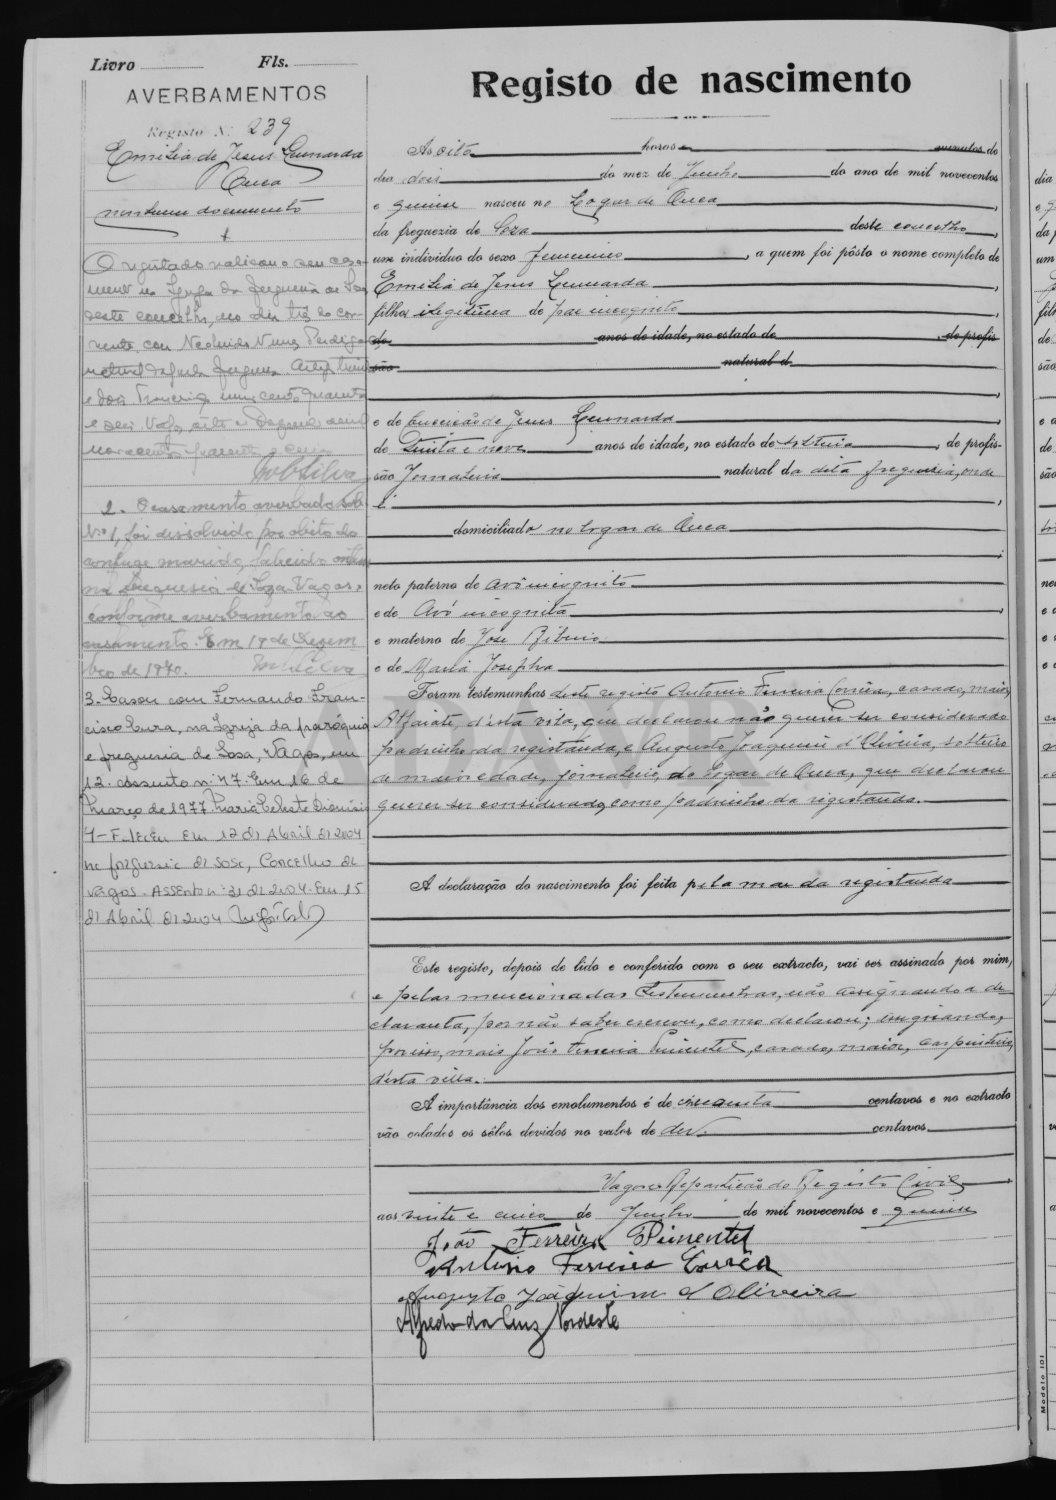 Livro Fls.
AVERBAMENTOS
Registo N.º 239
Emilia de Jesus Lennarda
Ouca
nenhum documento
O registado realisou o seu casa-
mento na Igreja da freguesia de
deste concelho, no dia três do cor-
rente, com Nunes
natural freguesia
e dois
e seis
novecentos quarenta e
2. O casamento averbado sob
N.º 1, foi dissolvido por obito do
conjuge marido, falecido
na freguesia de Soza, Vagos,
conforme averbamento ao
casamento. Em 17 de Dezem
bro de 1970.
3. Casou com Fernando Fran-
cisco Cura, na Igreja da paróquia
e freguesia de Sosa, Vagos, em
12. assento n.º 47. Em 16 de
Março de 1977. Maria Celeste Dionísio
4- Faleceu Em 12 de Abril de 2004
na freguesia de Sosa, Concelho de
Vagos. Assento n.º 31 de 2004. Em 15
de Abril de 2004
Registo de nascimento
As oito horas e minutos do
dia dois do mez de Junho do ano de mil novecentos
e quinse nasceu no Logar de Ouca
da freguezia de Soza deste concelho,
um individuo do sexo femenino, a quem foi pôsto o nome completo de
Emilia de Jesus Lennarda,
filha ilegitima de pai incognito
de anos de idade, no estado de de profis-
são natural d
e de Conceição de Jesus Lennarda
de trinta e nove anos de idade, no estado de solteira, de profis-
são Jornaleira natural da dita freguesia, onde
é
domiciliado no logar de Ouca
neto paterno de avô incognito
e de Avó incognita,
e materno de José Ribeiro
e de Maria Josepha
Foram testemunhas deste registo Antonio Ferreira Corrêa, casado, maior,
Alfaiate, d'esta vila, que declarou não querer ser considerado
padrinho da registanda, e Augusto Joaquim d'Oliveira, solteiro
de maioridade, jornaleiro, do Logar de Ouca, que declarou
querer ser considerado, como padrinho da registanda.
A declaração do nascimento foi feita pela mae da registanda
Este registo, depois de lido e conferido com o seu extracto, vai ser assinado por mim,
e pelas mencionadas testemunhas, não assignando a de-
claranta, por não saber escrever, como declarou; assignando,
por isso, mais João Ferreira Pimentel, casado, maior, carpinteiro,
d'esta villa.
A importância dos emolumentos é de cincoenta centavos e no extracto
vão colados os sêlos devidos no valor de dez centavos
Vagos e Repartição do Registo Civil
aos vinte e cinco de Junho de mil novecentos e quinse
João Ferreira Pimentel
Antonio Ferreira Corrêa
Augusto Joaquim d'Oliveira
Alfredo da Cruz Nordeste
ADAVR
Modelo 101